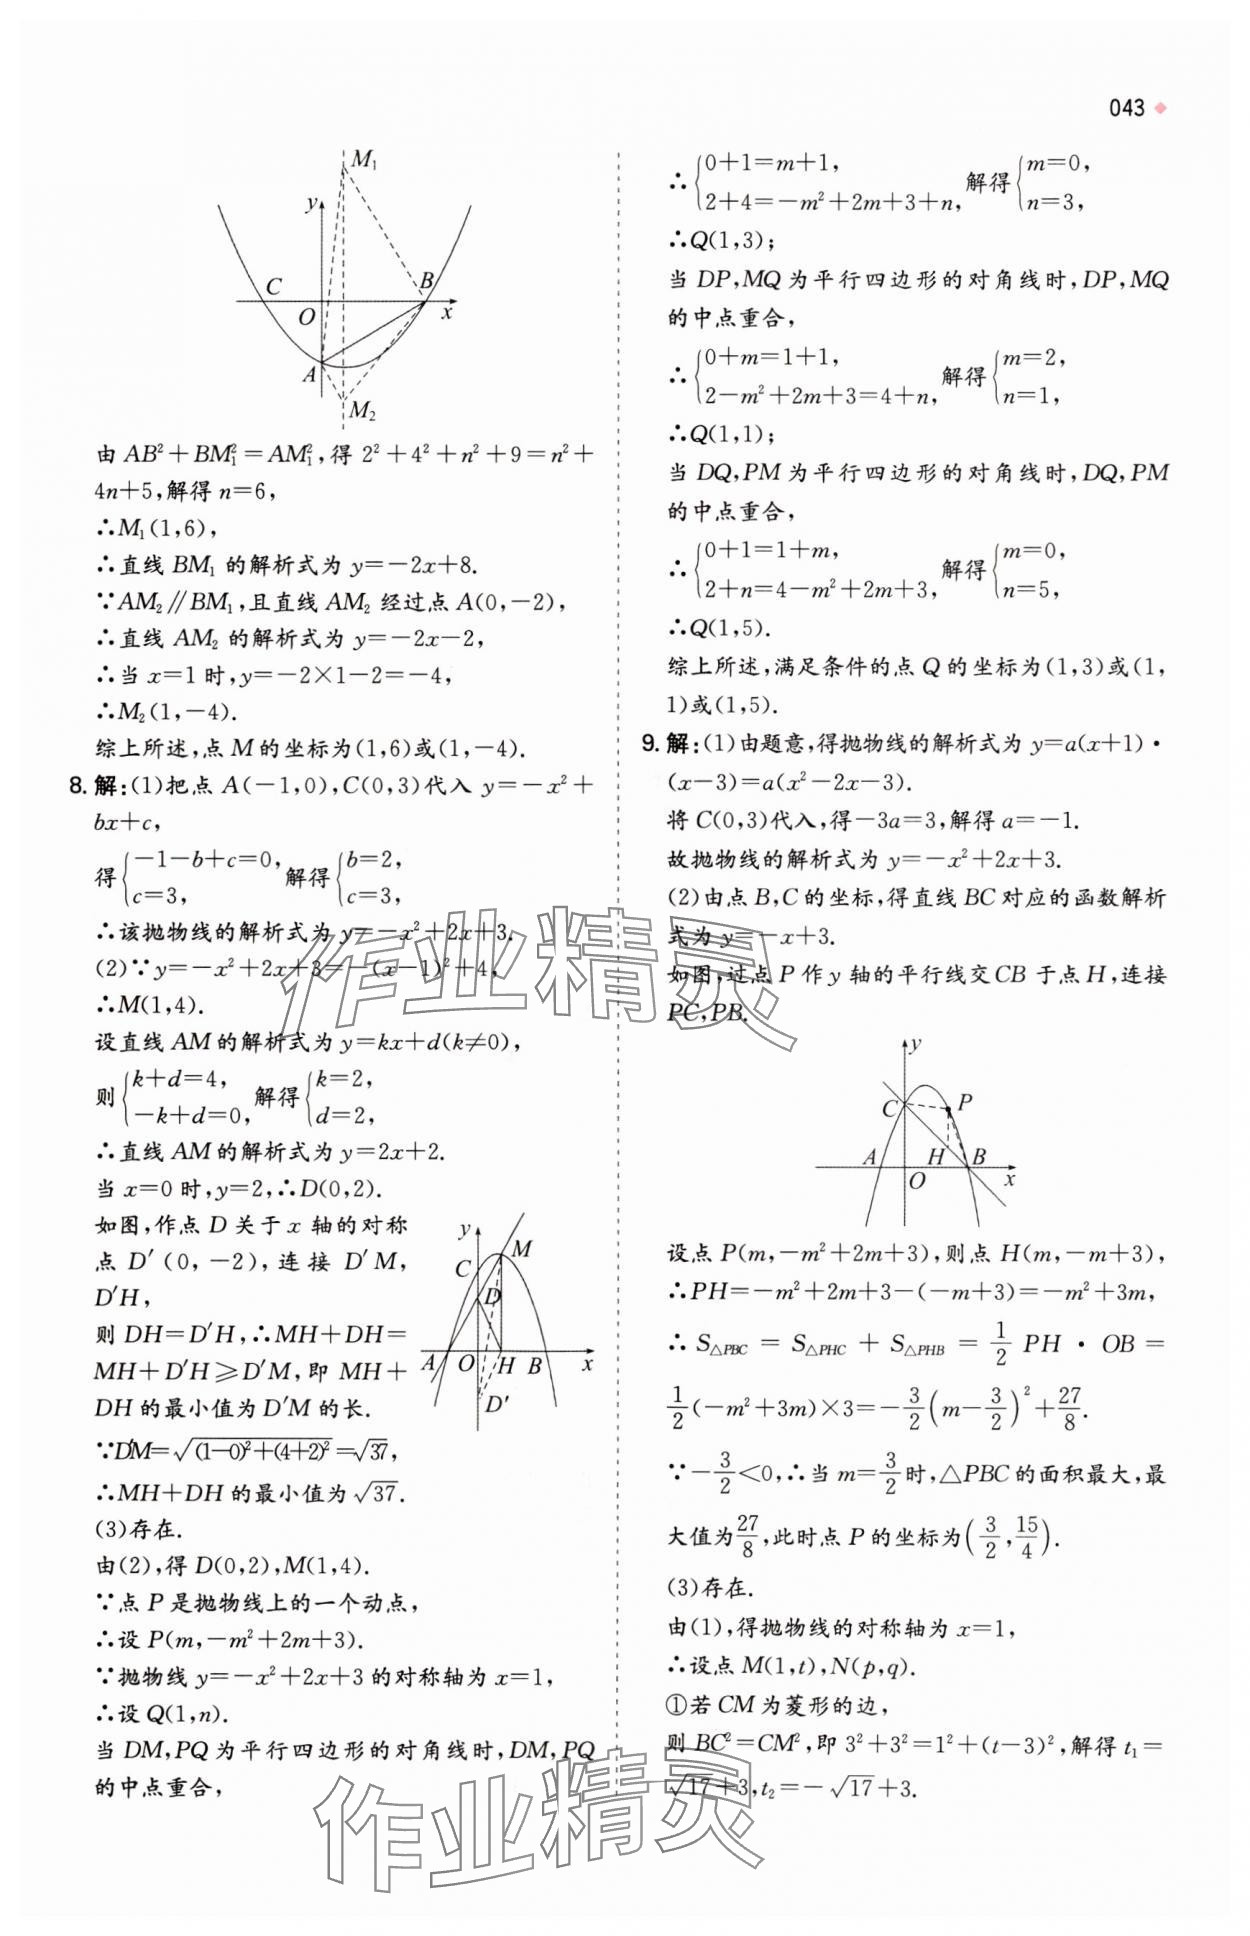 043
M₁
y
C
B
O
x
A
M₂
由 AB²+BM₁²=AM₁²,得 2²+4²+n²+9=n²+
4n+5,解得 n=6,
∴M₁(1,6),
∴直线 BM₁ 的解析式为 y=-2x+8.
∵AM₂∥BM₁,且直线 AM₂ 经过点 A(0,-2),
∴直线 AM₂ 的解析式为 y=-2x-2,
∴当 x=1 时,y=-2×1-2=-4,
∴M₂(1,-4).
综上所述,点 M 的坐标为(1,6)或(1,-4).
8. 解:(1)把点 A(-1,0),C(0,3)代入 y=-x²+
bx+c,
得{-1-b+c=0, c=3, 解得{b=2, c=3,
∴该抛物线的解析式为 y=-x²+2x+3.
(2)∵y=-x²+2x+3=-(x-1)²+4,
∴M(1,4).
设直线 AM 的解析式为 y=kx+d(k≠0),
则{k+d=4, -k+d=0, 解得{k=2, d=2,
∴直线 AM 的解析式为 y=2x+2.
当 x=0 时,y=2,∴D(0,2).
如图,作点 D 关于 x 轴的对称
点 D′(0,-2),连接 D′M,
D′H,
则 DH=D′H,∴MH+DH=
MH+D′H≥D′M,即 MH+
DH 的最小值为 D′M 的长.
y
M
C
D
A
O
H
B
x
D′
∵D′M=√((1-0)²+(4+2)²)=√37,
∴MH+DH 的最小值为 √37.
(3)存在.
由(2),得 D(0,2),M(1,4).
∵点 P 是抛物线上的一个动点,
∴设 P(m,-m²+2m+3).
∵抛物线 y=-x²+2x+3 的对称轴为 x=1,
∴设 Q(1,n).
当 DM,PQ 为平行四边形的对角线时,DM,PQ
的中点重合,
∴{0+1=m+1, 2+4=-m²+2m+3+n, 解得{m=0, n=3,
∴Q(1,3);
当 DP,MQ 为平行四边形的对角线时,DP,MQ
的中点重合,
∴{0+m=1+1, 2-m²+2m+3=4+n, 解得{m=2, n=1,
∴Q(1,1);
当 DQ,PM 为平行四边形的对角线时,DQ,PM
的中点重合,
∴{0+1=1+m, 2+n=4-m²+2m+3, 解得{m=0, n=5,
∴Q(1,5).
综上所述,满足条件的点 Q 的坐标为(1,3)或(1,
1)或(1,5).
9. 解:(1)由题意,得抛物线的解析式为 y=a(x+1)·
(x-3)=a(x²-2x-3).
将 C(0,3)代入,得-3a=3,解得 a=-1.
故抛物线的解析式为 y=-x²+2x+3.
(2)由点 B,C 的坐标,得直线 BC 对应的函数解析
式为 y=-x+3.
如图,过点 P 作 y 轴的平行线交 CB 于点 H,连接
PC,PB.
y
C
P
A
H
B
O
x
设点 P(m,-m²+2m+3),则点 H(m,-m+3),
∴PH=-m²+2m+3-(-m+3)=-m²+3m,
∴ S△PBC = S△PHC + S△PHB = 1/2 PH · OB =
1/2(-m²+3m)×3=-3/2(m-3/2)²+27/8.
∵-3/2<0,∴当 m=3/2时,△PBC 的面积最大,最
大值为27/8,此时点 P 的坐标为(3/2,15/4).
(3)存在.
由(1),得抛物线的对称轴为 x=1,
∴设点 M(1,t),N(p,q).
①若 CM 为菱形的边,
则 BC²=CM²,即 3²+3²=1²+(t-3)²,解得 t₁=
√17+3,t₂=-√17+3.
作业精灵
作业精灵